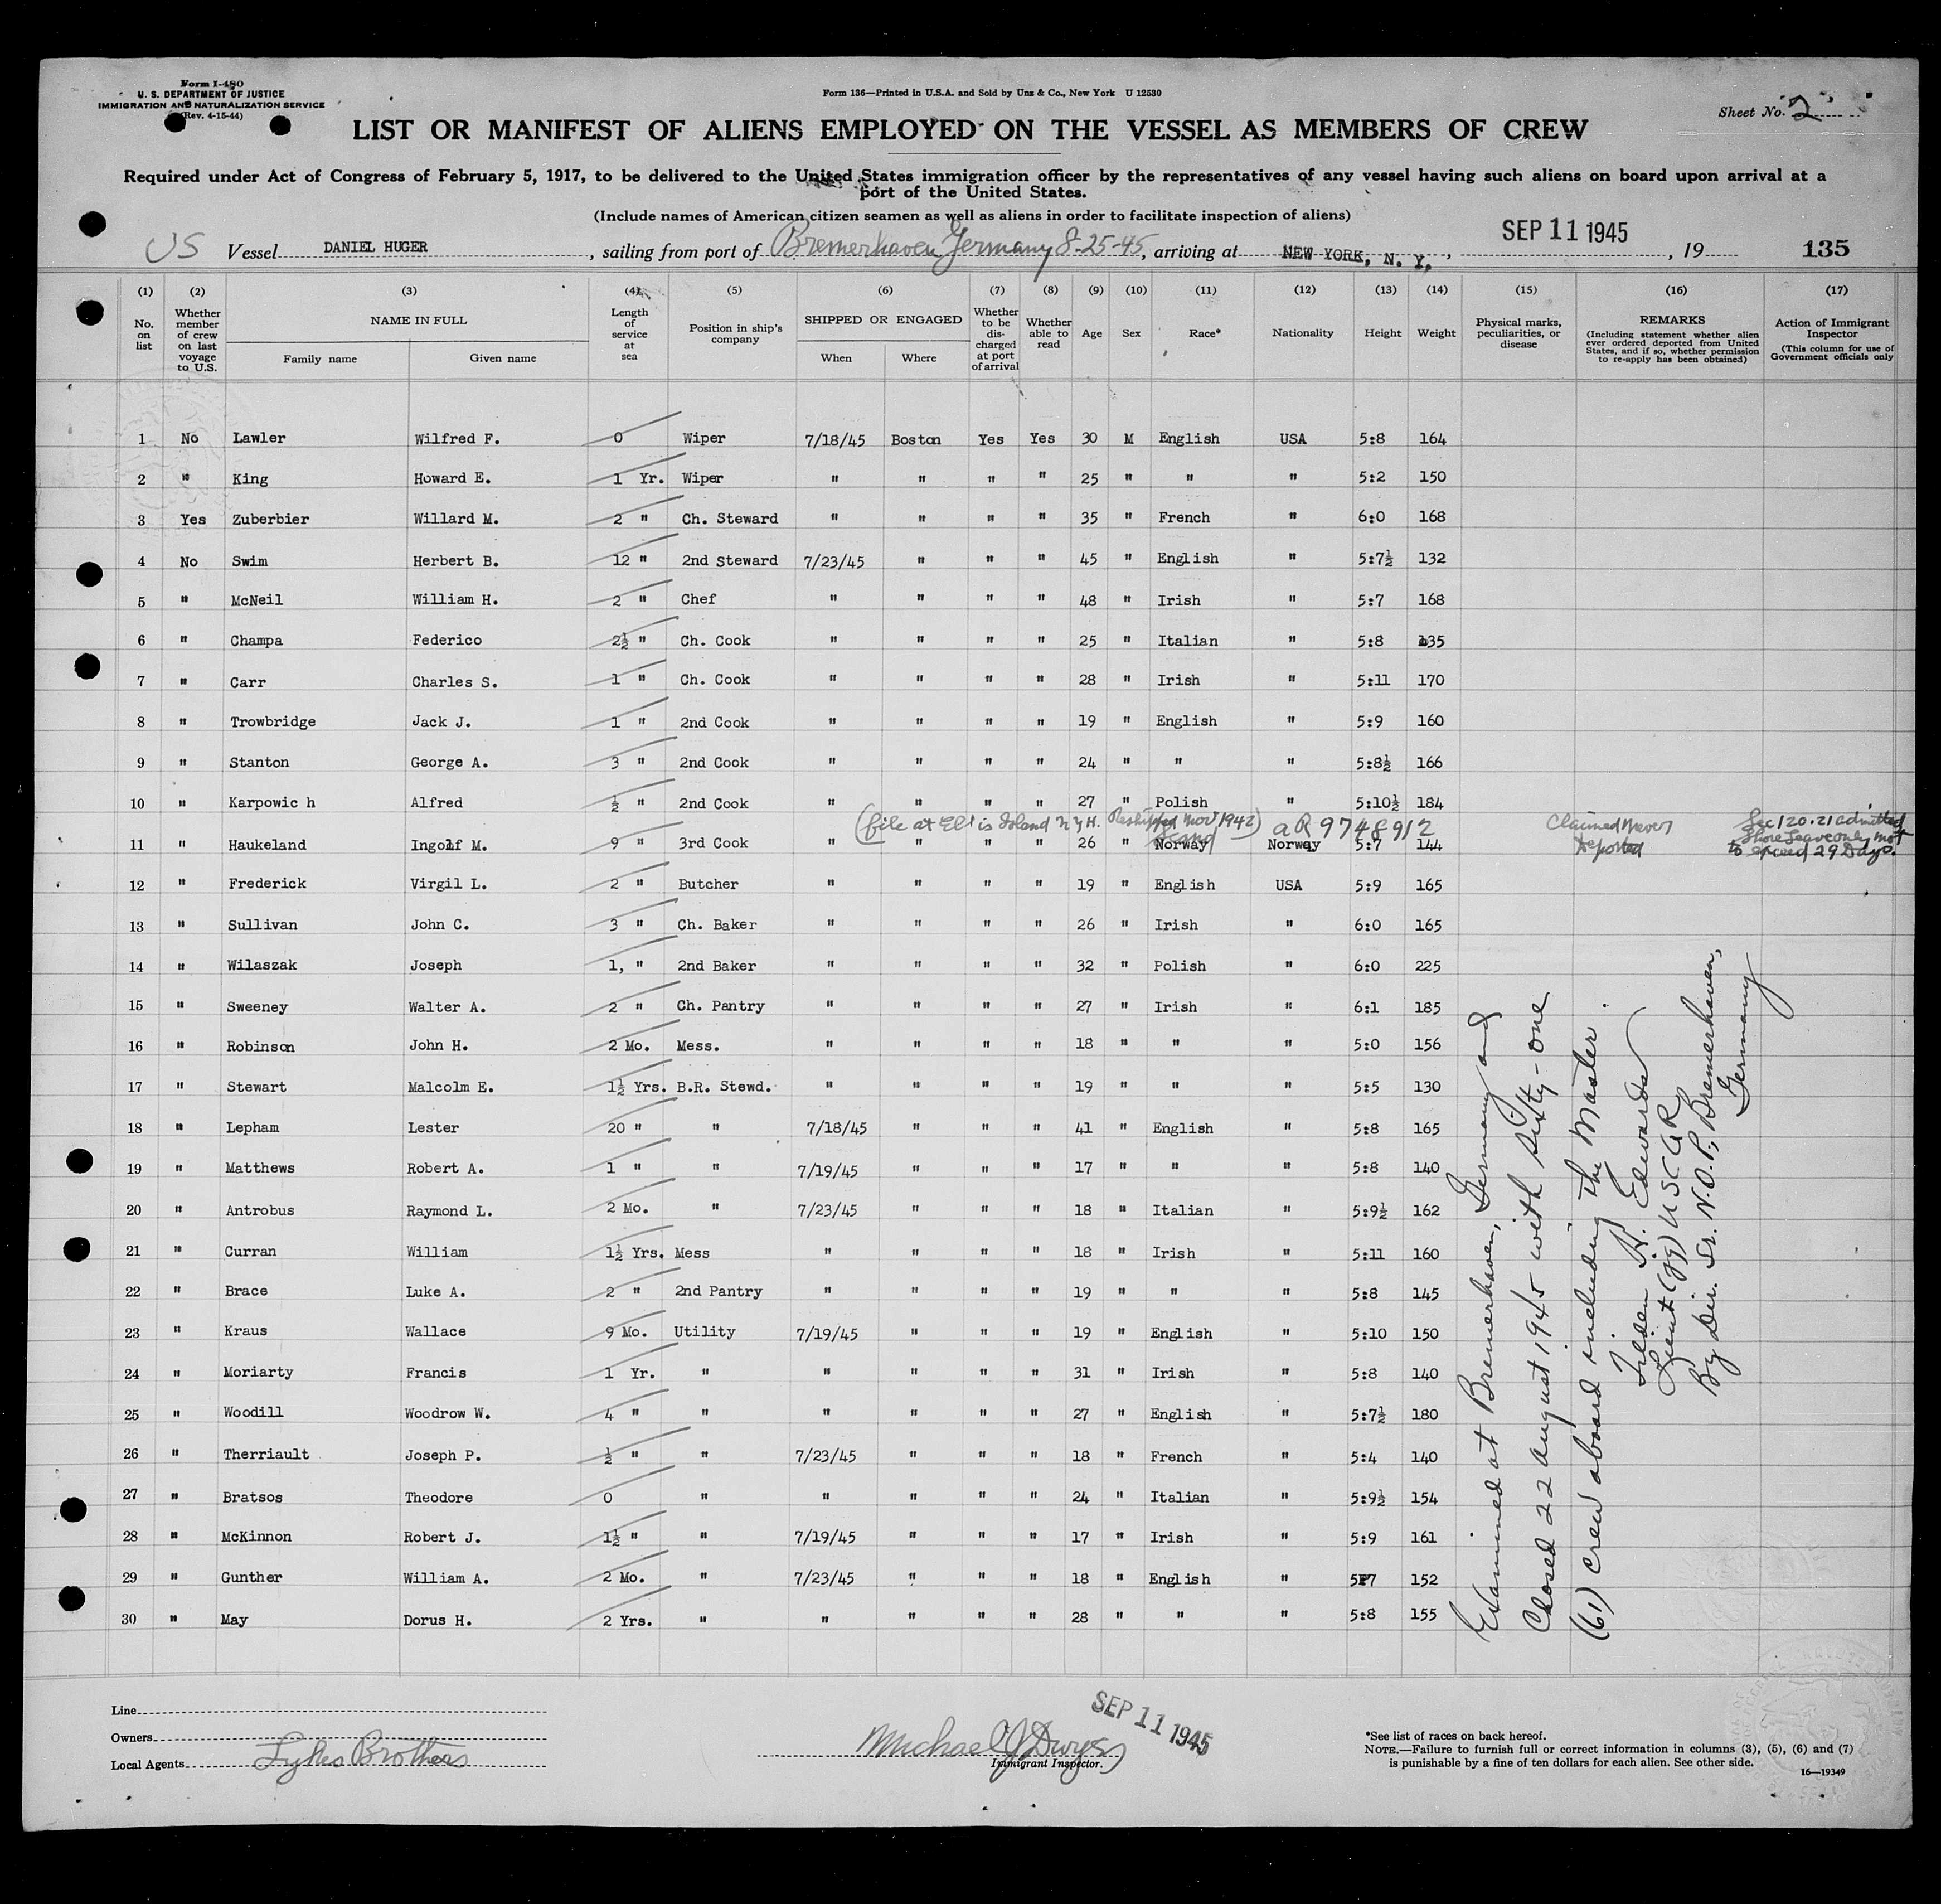 Form I-480
U. S. DEPARTMENT OF JUSTICE
IMMIGRATION AND NATURALIZATION SERVICE
(Rev. 4-15-44)
Form 136—Printed in U.S.A. and Sold by Unz & Co., New York U 12530
Sheet No. 2
LIST OR MANIFEST OF ALIENS EMPLOYED ON THE VESSEL AS MEMBERS OF CREW
Required under Act of Congress of February 5, 1917, to be delivered to the United States immigration officer by the representatives of any vessel having such aliens on board upon arrival at a
port of the United States.
(Include names of American citizen seamen as well as aliens in order to facilitate inspection of aliens)
US Vessel DANIEL HUGER, sailing from port of Bremerhaven Germany 8-25-45, arriving at NEW YORK, N. Y., SEP 11 1945, 19 135
(1) (2) (3) (4) (5) (6) (7) (8) (9) (10) (11) (12) (13) (14) (15) (16) (17)
No. on list
Whether member of crew on last voyage to U.S.
NAME IN FULL
Family name Given name
Length of service at sea
Position in ship's company
SHIPPED OR ENGAGED
When Where
Whether to be discharged at port of arrival
Whether able to read
Age
Sex
Race*
Nationality
Height
Weight
Physical marks, peculiarities, or disease
REMARKS
(Including statement whether alien ever ordered deported from United States, and if so, whether permission to re-apply has been obtained)
Action of Immigrant Inspector
(This column for use of Government officials only
1 No Lawler Wilfred F. 0 Wiper 7/18/45 Boston Yes Yes 30 M English USA 5:8 164
2 " King Howard E. 1 Yr. Wiper " " " " 25 " " " 5:2 150
3 Yes Zuberbier Willard M. 2 " Ch. Steward " " " " 35 " French " 6:0 168
4 No Swim Herbert B. 12 " 2nd Steward 7/23/45 " " " 45 " English " 5:7½ 132
5 " McNeil William H. 2 " Chef " " " " 48 " Irish " 5:7 168
6 " Champa Federico 2½ " Ch. Cook " " " " 25 " Italian " 5:8 135
7 " Carr Charles S. 1 " Ch. Cook " " " " 28 " Irish " 5:11 170
8 " Trowbridge Jack J. 1 " 2nd Cook " " " " 19 " English " 5:9 160
9 " Stanton George A. 3 " 2nd Cook " " " " 24 " " " 5:8½ 166
10 " Karpowic h Alfred ½ " 2nd Cook " " " " 27 " Polish " 5:10½ 184
(file at Ellis Island N Y H. Reshipped Nov 1942) aR 9748912
Claimed Never deported
Sec 120.21 admitted Shore Leave only not to exceed 29 Days.
11 " Haukeland Ingolf M. 9 " 3rd Cook " " " " 26 " Scand Norway Norway 5:7 144
12 " Frederick Virgil L. 2 " Butcher " " " " 19 " English USA 5:9 165
13 " Sullivan John C. 3 " Ch. Baker " " " " 26 " Irish " 6:0 165
14 " Wilaszak Joseph 1, " 2nd Baker " " " " 32 " Polish " 6:0 225
15 " Sweeney Walter A. 2 " Ch. Pantry " " " " 27 " Irish " 6:1 185
16 " Robinson John H. 2 Mo. Mess. " " " " 18 " " " 5:0 156
17 " Stewart Malcolm E. 1½ Yrs. B.R. Stewd. " " " " 19 " " " 5:5 130
18 " Lepham Lester 20 " " 7/18/45 " " " 41 " English " 5:8 165
19 " Matthews Robert A. 1 " " 7/19/45 " " " 17 " " " 5:8 140
20 " Antrobus Raymond L. 2 Mo. " 7/23/45 " " " 18 " Italian " 5:9½ 162
21 " Curran William 1½ Yrs. Mess " " " " 18 " Irish " 5:11 160
22 " Brace Luke A. 2 " 2nd Pantry " " " " 19 " " " 5:8 145
23 " Kraus Wallace 9 Mo. Utility 7/19/45 " " " 19 " English " 5:10 150
24 " Moriarty Francis 1 Yr. " " " " " 31 " Irish " 5:8 140
25 " Woodill Woodrow W. 4 " " " " " " 27 " English " 5:7½ 180
26 " Therriault Joseph P. ½ " " 7/23/45 " " " 18 " French " 5:4 140
27 " Bratsos Theodore 0 " " " " " 24 " Italian " 5:9½ 154
28 " McKinnon Robert J. 1½ " " 7/19/45 " " " 17 " Irish " 5:9 161
29 " Gunther William A. 2 Mo. " 7/23/45 " " " 18 " English " 5:7 152
30 " May Dorus H. 2 Yrs. " " " " " 28 " " " 5:8 155
Examined at Bremerhaven, Germany and
Closed 22 August 1945 with sixty-one
(61) crew aboard including the Master.
Tilden H. Edwards
Lieut (jg) USCGR
By Dir. Sr. N.O.P., Bremerhaven,
Germany
Line
Owners
Local Agents Lykes Brothers
Michael J Dwyer
Immigrant Inspector.
SEP 11 1945
*See list of races on back hereof.
NOTE.—Failure to furnish full or correct information in columns (3), (5), (6) and (7)
is punishable by a fine of ten dollars for each alien. See other side.
16—19349